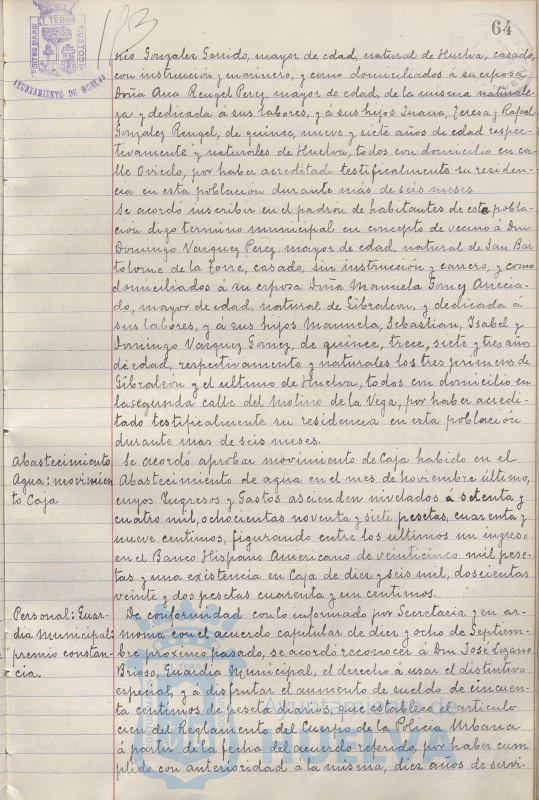 64
183
PORTUS MARIS ET TERRÆ CUSTODIA
AYUNTAMIENTO DE HUELVA
nio Gonzalez Garrido, mayor de edad, natural de Huelva, casado,
con instrucción y marinero, y como domiciliados á su esposa
Doña Ana Rengel Perez, mayor de edad, de la misma naturale-
za y dedicada á sus labores, y á sus hijos Juana, Teresa y Rafael
Gonzalez Rengel, de quince, nueve y siete años de edad respec-
tivamente y naturales de Huelva, todos con domicilio en ca-
lle Oviedo, por haber acreditado testificalmente su residen-
cia en esta población durante más de seis meses.
Se acordó inscribir en el padrón de habitantes de este pobla-
ción digo termino municipal en concepto de vecino á Don
Domingo Vazquez Perez, mayor de edad, natural de San Bar-
tolome de la Torre, casado, sin instrucción y carrero, y como
domiciliados á su esposa Doña Manuela Gomez Arrecia-
do, mayor de edad, natural de Gibraleon, y dedicada á
sus labores, y á sus hijos Manuela, Sebastian, Isabel y
Domingo Vazquez Gomez, de quince, trece, siete y tres años
de edad, respectivamente y naturales los tres primeros de
Gibraleón y el ultimo de Huelva, todos con domicilio en
la segunda calle del Molino de la Vega, por haber acredi-
tado testificalmente su residencia en esta población
durante mas de seis meses.
Abastecimiento
Agua: movimien
to Caja
Se acordó aprobar movimiento de Caja habido en el
Abastecimiento de agua en el mes de noviembre último,
cuyos Ingresos y Gastos ascienden nivelados á setenta y
cuatro mil, ochocientas noventa y siete pesetas, cuarenta y
nueve centimos, figurando entre los ultimos un ingreso
en el Banco Hispano Americano de veinticinco mil pese-
tas y una existencia en Caja de diez y seis mil, doscientas
veinte y dos pesetas cuarenta y un centimos.
Personal: Guar-
dia Municipal:
premio constan-
cia.
De conformidad con lo informado por Secretaria y en ar-
monia con el acuerdo capitular de diez y ocho de Septiem-
bre proximo pasado, se acordó reconocer á Don José Lozano
Brioso, Guardia Municipal, el derecho á usar el distintivo
especial, y á disfrutar el aumento de sueldo de cincuen-
ta centimos de peseta diarios, que establece el articulo
cien del Reglamento del Cuerpo de la Policia Urbana
á partir de la fecha del acuerdo referido, por haber cum
plido con anterioridad a la misma, diez años de servi-
Ayuntamiento de
HUELVA